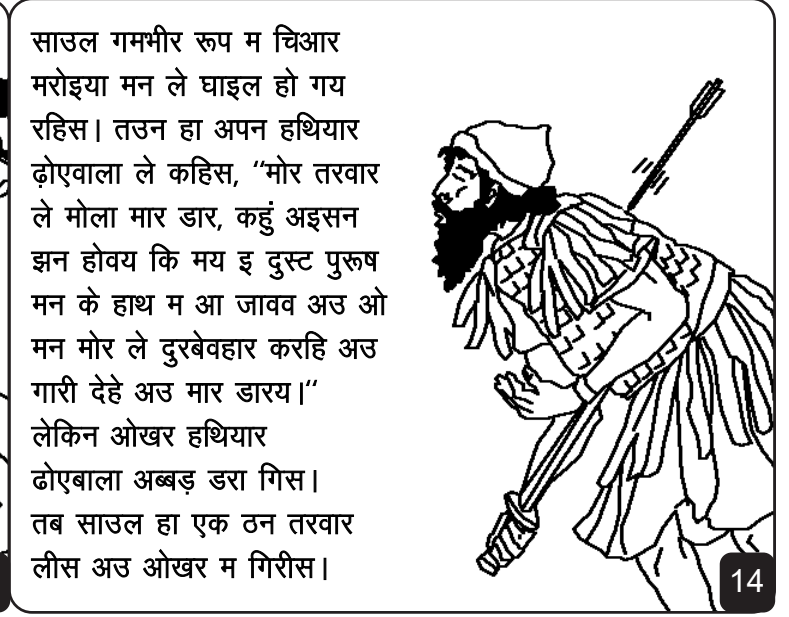 साउल गमभीर रूप म चिआर
मरोइया मन ले घाइल हो गय
रहिस। तउन हा अपन हथियार
ढ़ोएवाला ले कहिस, “मोर तरवार
ले मोला मार डार, कहुं अइसन
झन होवय कि मय इ दुस्ट पुरूष
मन के हाथ म आ जावव अउ ओ
मन मोर ले दुरबेवहार करहि अउ
गारी देहे अउ मार डारय।“
लेकिन ओखर हथियार
ढोएबाला अब्बड़ डरा गिस।
तब साउल हा एक ठन तरवार
लीस अउ ओखर म गिरीस।
14